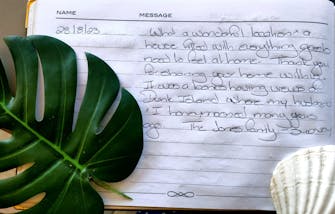 NAME MESSAGE
28/8/23 What a wonderful location & a
house filled with everything guests
need to feel at home. Thank you
for sharing your home with us.
It was a bonus having views of
Dunk Island where my husband
& I honeymooned many years
ago. The Jones Family